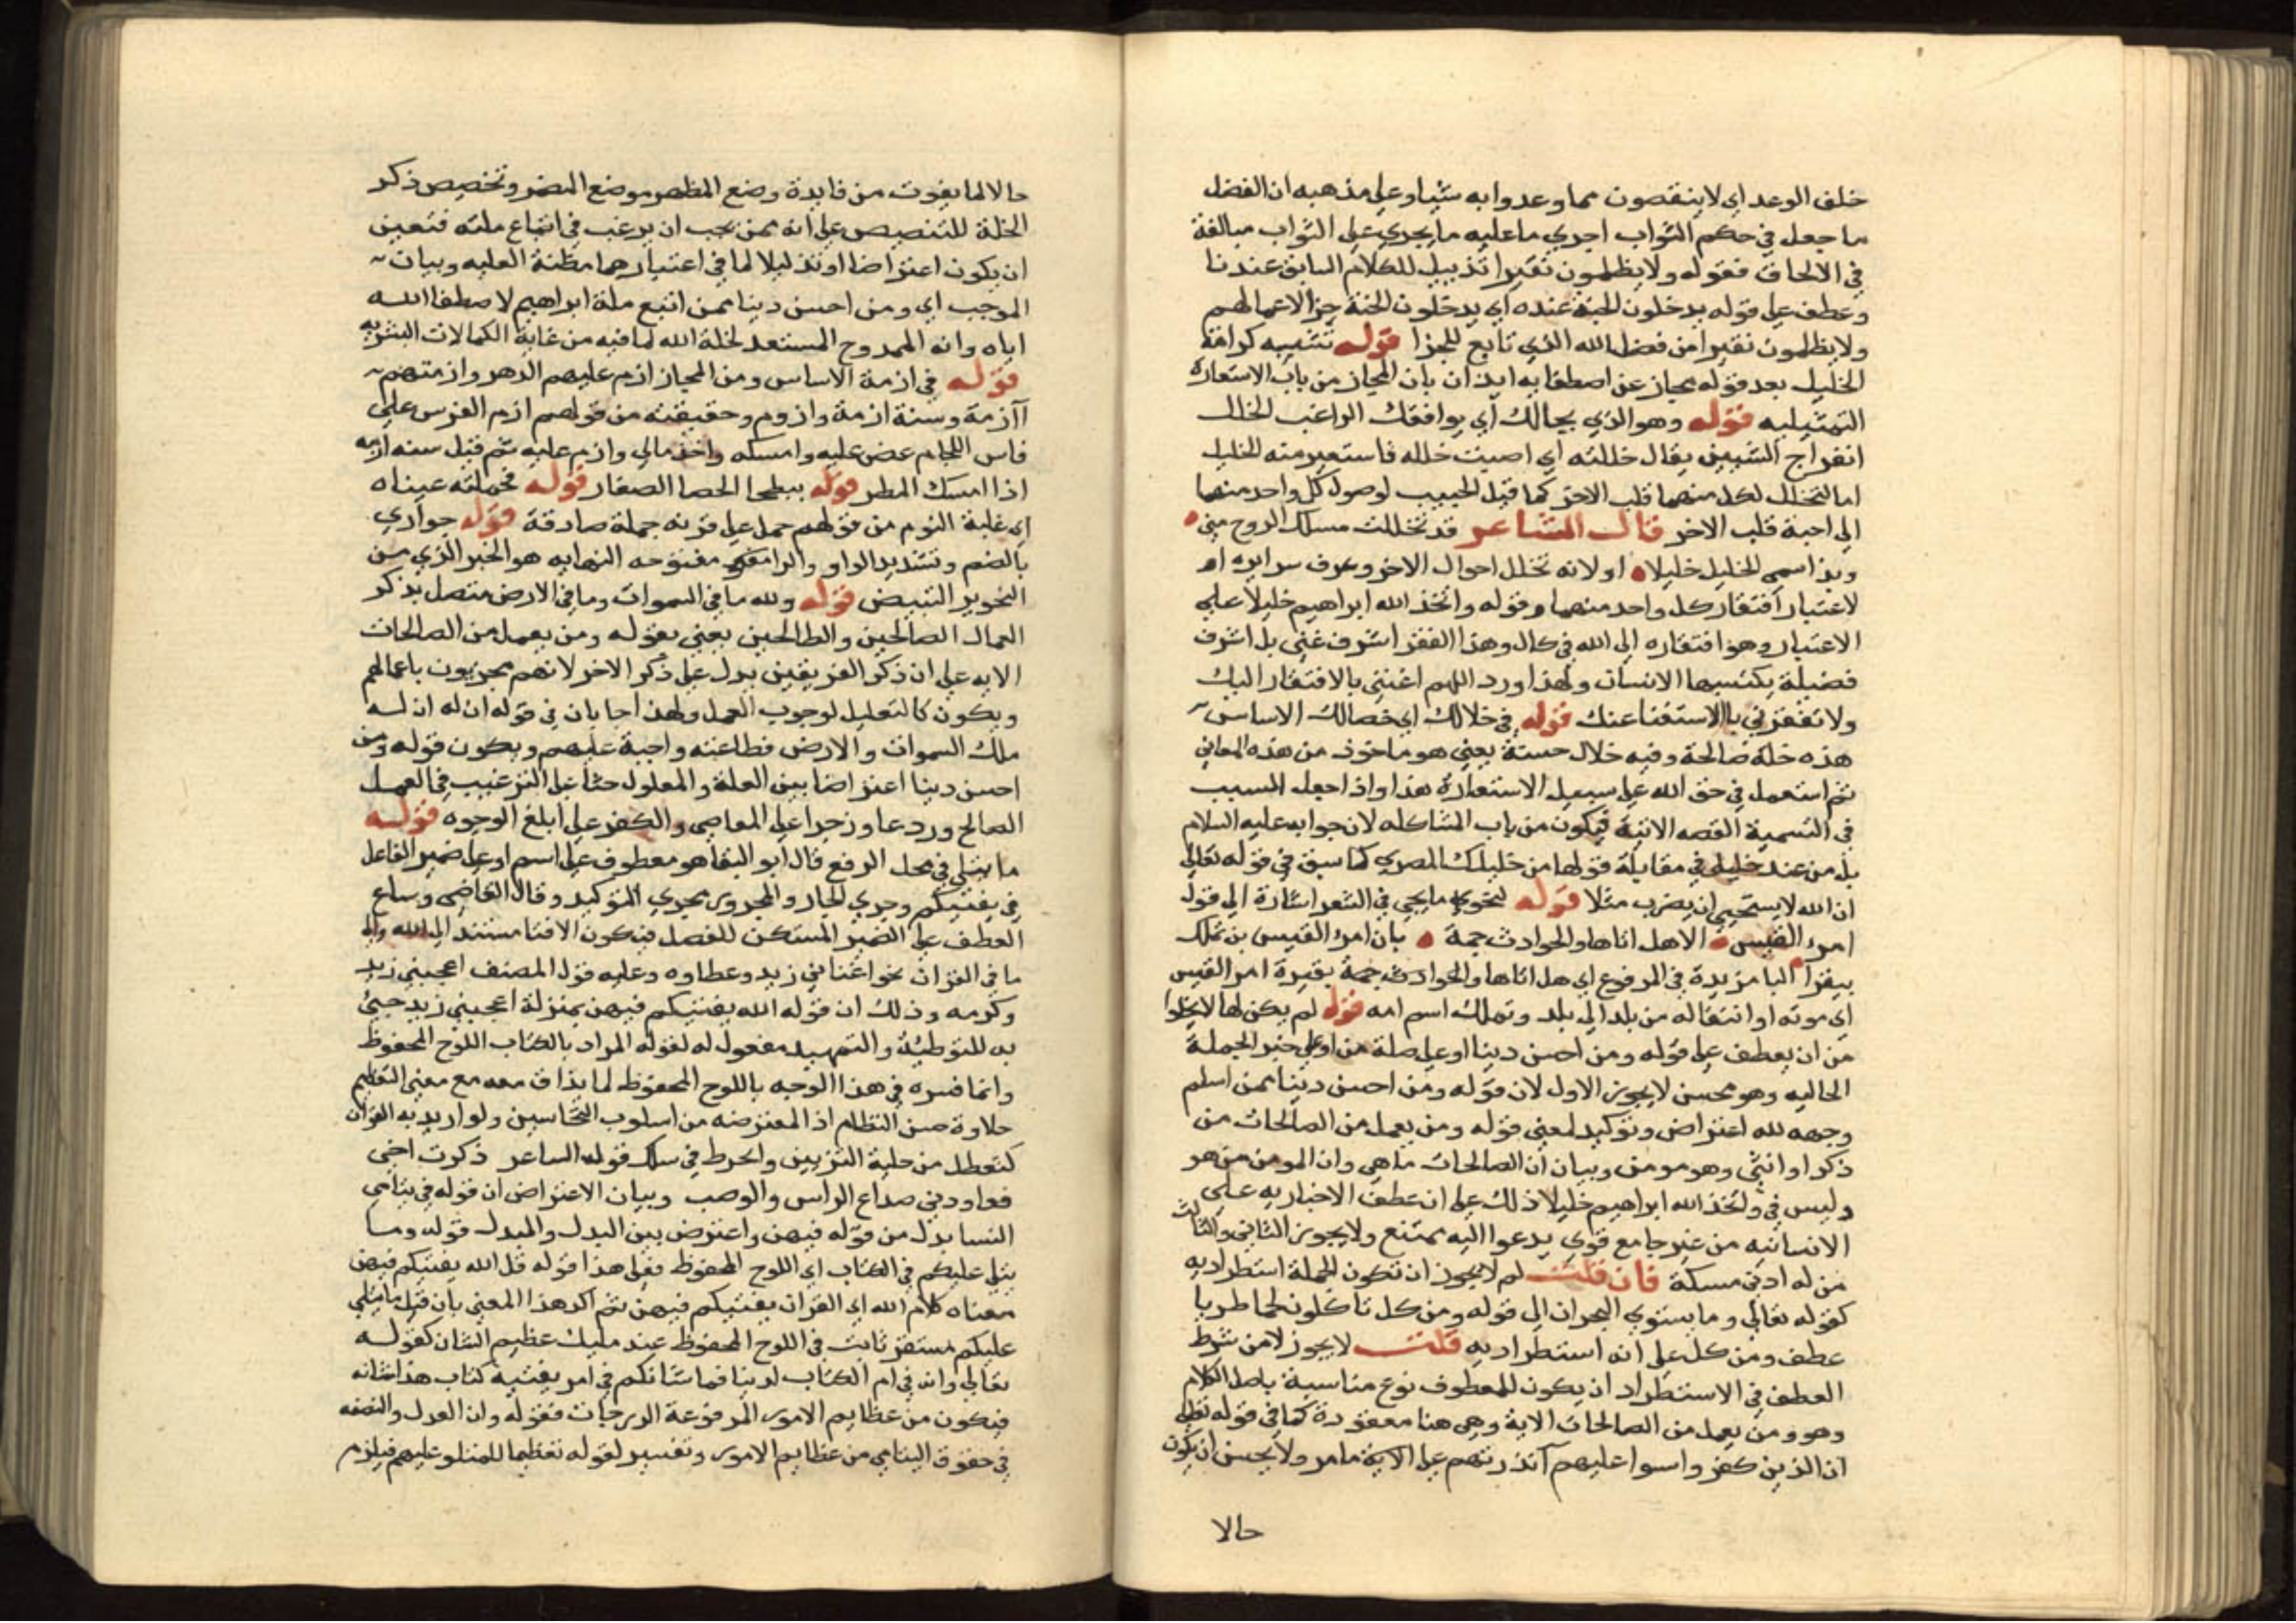 خلف الوعد اي لا ينقصون مما وعدوا به شيا وعلى مذهبه ان الفضل
ما جعل في حكم الثواب اجري ما عليه ما يجري على الثواب مبالغة
في الالحاق فقوله ولا يظلمون نقيرا تذييل للكلام السابق عندنا
وعطف على قوله يدخلون الجنة عنده اي يدخلون الجنة جزا لاعمالهم
ولا يظلمون نقيرا من فضل الله الذي تابع للجزا قوله تشبيه كرامة
الخليل بعد قوله مجاز عن اصطفا به ايذان بان المجاز من باب الاستعارة
التمثيليه قوله وهو الذي يخالك اي يوافقك الراغب الخلل
انفراج الشيين يقال خللته اي اصبت خلله فاستعير منه الخليل
اما لتخلل لكل منهما قلب الاخر كما قيل الحبيب لوصول كل واحد منهما
الى احبة قلب الاخر قال الشاعر قد تخللت مسلك الروح مني
وبذا سمي الخليل خليلا او لانه تخلل احوال الاخر وعرف سرايره او
لاعتبار افتقار كل واحد منهما وقوله واتخذ الله ابراهيم خليلا على
الاعتبار وهو افتقاره الى الله في كال وهذا الفقر اشرف غنى بل اشرف
فضيلة يكتسبها الانسان ولهذا ورد اللهم اغنني بالافتقار اليك
ولا تفقرني بالاستغنا عنك قوله في خلالك اي خصالك الاساس
هذه خلة صالحة وفيه خلال حسنة يعني هو ماخوذ من هذه المعاني
ثم استعمل في حق الله على سبيل الاستعارة هذا واذا جعل السبب
في التسمية القصه الاتية فيكون من باب المشاكله لان جوابه عليه السلام
بل من عند خليلي في مقابلة قولها من خليلك المصري كما سبق في قوله تعالى
ان الله لا يستحيي ان يضرب مثلا قوله لنحو ما يجي في الشعر اشارة الى قول
امرء القيس الا هل اتاها والحوادث جمة بان امرء القيس بن تملك
بيقرا البا مزيدة في المرفوع اي هل اتاها والحوادث جمة بقيرة امر القيس
اي موته او انتقاله من بلد الى بلد وتملك اسم امه قوله لم يكن لها لا يخلوا
من ان يعطف على قوله ومن احسن دينا او على صلة من او على خبر الجملة
الحاليه وهو محسن لا يجوز الاول لان قوله ومن احسن دينا ممن اسلم
وجهه لله اعتراض وتوكيد لمعنى قوله ومن يعمل من الصالحات من
ذكر او انثى وهو مومن وبيان ان الصالحات ما هي وان المومن من هو
وليس في واتخذ الله ابراهيم خليلا ذلك على ان عطف الاخباريه على
الانسانيه من غير جامع قوي يدعوا اليه ممتنع ولا يجوز الثاني والثالث
من له ادنى مسكة فان قلت لم لا يجوز ان تكون الجملة استطراديه
كقوله تعالى وما يستوي البحران الى قوله ومن كل تاكلون لحما طريا
عطف ومن كل على انه استطراديه قلت لا يجوز لان من شرط
العطف في الاستطراد ان يكون للمعطوف نوع مناسبة باصل الكلام
وهو ومن يعمل من الصالحات الاية وهي هنا مفقودة كما في قوله تعالى
ان الذين كفروا سوا عليهم آنذرتهم على الاية ما مر ولا يحسن ان يكون
حالا
حالا لما يفوت من فايدة وضع المظهر موضع المضمر وتخصيص ذكر
الخلة للتنصيص على انه ممن يجب ان يرغب في اتباع ملته فتعين
ان يكون اعتراضا او تذليلا لما في اعتبارهما مظنة العليه وبيان
الموجب اي ومن احسن دينا ممن اتبع ملة ابراهيم لاصطفا الله
اياه وانه الممدوح المستعد لخلة الله لما فيه من غاية الكمالات البشريه
قوله في ازمة الاساس ومن المجاز ازم عليهم الدهر وازمتهم
آزمة وسنة ازمة وازوم وحقيقته من قولهم ازم الفرس على
فاس اللجام عض عليه وامسكه واخذ مالي وازم عليه ثم قيل سنه ازمه
اذا امسك المطر قوله ببطحا الحصا الصغار قوله فحملته عيناه
اي غلبة النوم من قولهم حمل على قرنه حملة صادقة قوله حوارى
بالضم وتشديد الواو والرا مفتوحه النهايه هو الخبز الذي من
التحوير التبييض قوله ولله ما في السموات وما في الارض متصل بذكر
العمال الصالحين والطالحين يعني بقوله ومن يعمل من الصالحات
الايه على ان ذكر الفريقين يدل على ذكر الاخر لانهم مجزيون باعمالهم
ويكون كالتعليل لوجوب العمل ولهذا جا بان في قوله ان له ان له
ملك السموات والارض فطاعته واجبة عليهم ويكون قوله ومن
احسن دينا اعتراضا بين العلة والمعلول حثا على الترغيب في العمل
الصالح وردعا وزجرا على المعاصي والكفر على ابلغ الوجوه قوله
ما يتلى في محل الرفع قال ابو البقا هو معطوف على اسم او على ضمير الفاعل
في يفتيكم وجري الجار والمجرور مجرى التوكيد وقال القاضي وساع
العطف على الضمير المستكن للفصل فيكون الافتا مستند الى الله والى
ما في القران نحو اغنا ني زيد وعطاوه وعليه قول المصنف اعجبني زيد
وكرمه وذلك ان قوله الله يفتيكم فيهن بمنزلة اعجبني زيد جيئ
به للتوطئة والتمهيد مفعول له لقوله المراد بالكتاب اللوح المحفوظ
وانما فسره في هذا الوجه باللوح المحفوظ لما يذاق معه مع معنى التعظيم
حلاوة حسن النظام اذ المعترضه من اسلوب التحاسين ولو اريد به القران
لتعطل من حلية التزيين وانخرط في سلك قوله الشاعر ذكرت اخي
فعاودني صداع الراس والوصب وبيان الاعتراض ان قوله في يتامى
النسا بدل من قوله فيهن واعترض بين البدل والمبدل قوله وما
يتلى عليكم في الكتاب اي اللوح المحفوظ فعلى هذا قوله قل الله يفتيكم فيهن
معناه كلام الله اي القران يفتيكم فيهن ثم اكد هذا المعنى بان قيل ما يتلى
عليكم مستقر ثابت في اللوح المحفوظ عند مليك عظيم الشان كقوله
تعالى وانه في ام الكتاب لدينا فما شانكم في امر يفتيه كتاب هذا شانه
فيكون من عظايم الامور المرفوعة الدرجات فقوله وان العدل والنصفه
في حقوق اليتامى من عظايم الامور وتفسير لقوله تعظيما للمتلو عليهم فيلزم